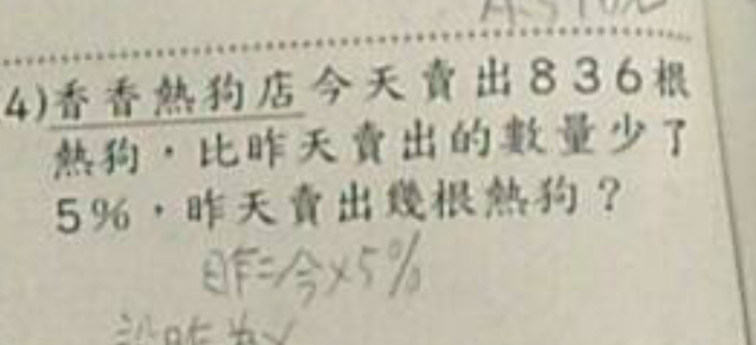 4)香香熱狗店今天賣出836根
熱狗，比昨天賣出的數量少了
5%，昨天賣出幾根熱狗？
昨=今×5%